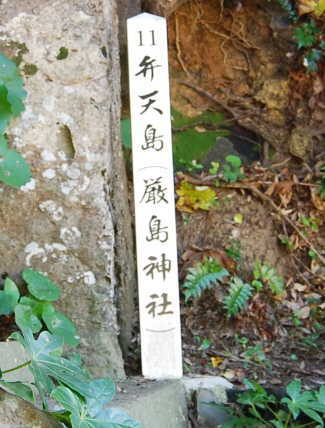 11
弁天島
(厳島神社)